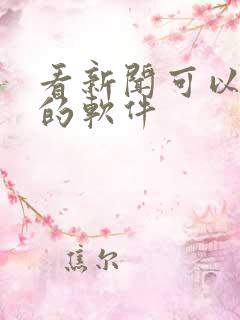 看新聞可以
的軟件
焦尔